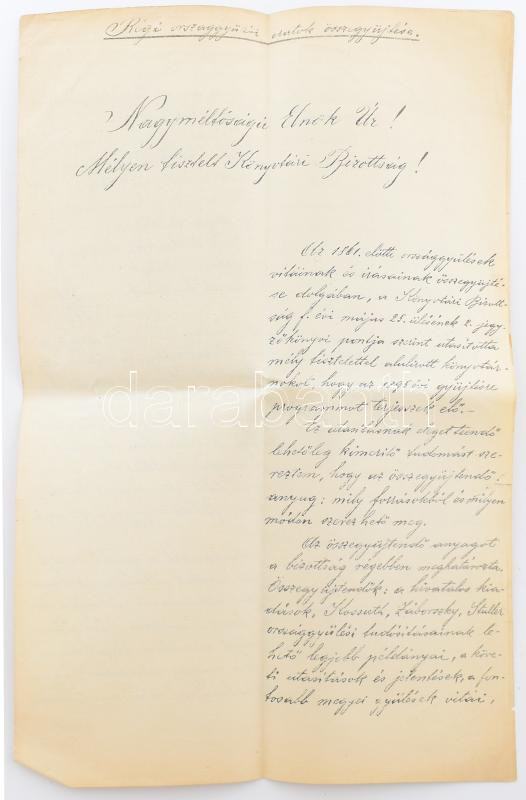 Régi országgyűlési iratok összegyűjtése.
Nagyméltóságú Elnök Úr!
Mélyen tisztelt Könyvtári Bizottság!
Az 1861. előtti országgyűlések
vitáinak és írásainak összegyűjté-
se dolgában, a Könyvtári Bizott-
ság f. évi május 25. ülésének 2. jegy-
zőkönyvi pontja szerint utasította
mély tisztelettel alulírott könyvtár-
nokot, hogy az évi gyűjtésre
programmot terjesszek elő.-
Ez utasításnak eleget teendő
lehetőleg kimerítő tudomást sze-
reztem, hogy az összegyűjtendő
anyag: mily forrásokból és milyen
módon szerezhető meg.
Az összegyűjtendő anyagot
a bizottság régebben meghatározta.
Összegyűjtendők: a hivatalos kia-
dások, Kossuth, Záborszky, Stuller
országgyűlési tudósításainak le-
hető legjobb példányai, a köve-
ti utasítások és jelentések, a fon-
tosabb megyei gyűlések vitái,
darabanth